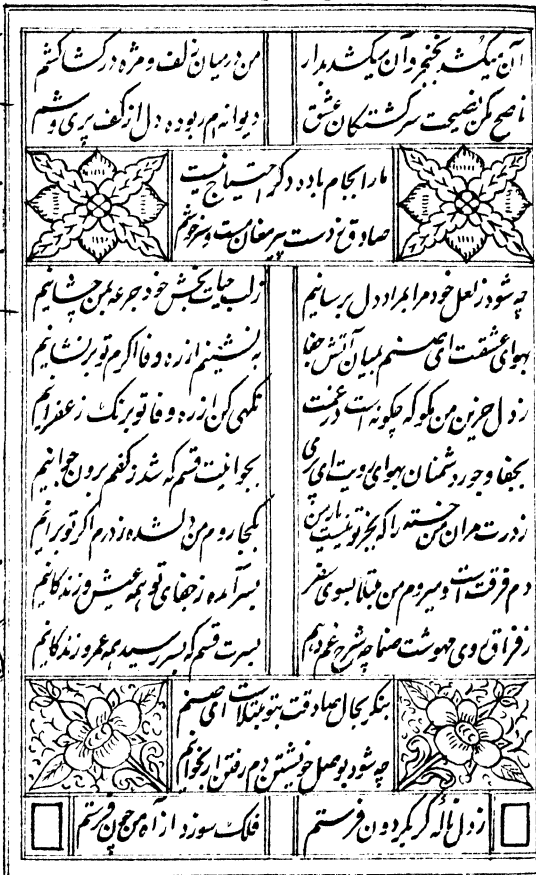 آن میکشد بخنجر و آن میکشد بدار من در میان زلف و مژه در کشاکشم
ناصح مکن نصیحت سرکشتکان عشق دیوانه ام ربوده دل از کف پری وشم
ما را بجام باده دکر احتیاج نیست
صادق ز دست پیر مغان مست و سرخوشم
چه شود ز لعل خود مرا بمراد دل برسانیم ز لب حیات بخش خود جرعه بمن چشانیم
بهوای عشقت ای صنم بمیان آتش جفا بنشینم از ره وفا اکرم تو بر نشانیم
ز دل حزین من مکو که چکونه است در غمت نکهی کن از ره وفا تو برنک زعفرانیم
بجفا و جور دشمنان بهوای رویت ای پری بجوانیت قسم که شد ز کفم برون جوانیم
ز درت مران من خسته را که بجز تو نیست کجا روم من دلشده ز درم اکر تو برانیم
دم فرقت است و میروم من مبتلا بسوی سفر بسر آمده ز جفای تو همه عیش و زندکانیم
ز فراق روی مهوشت صنما چه شرح غم دهم بسرت قسم که بسر رسید همه عمر و زندکانیم
بنکر بحال صادقت بتو مبتلاست ای صنم
چه شود بوصل خویشتن دم رفتن ار بخوانیم
ز دل ناله کر بکردون فرستم فلک سوزد از آه من چون فرستم